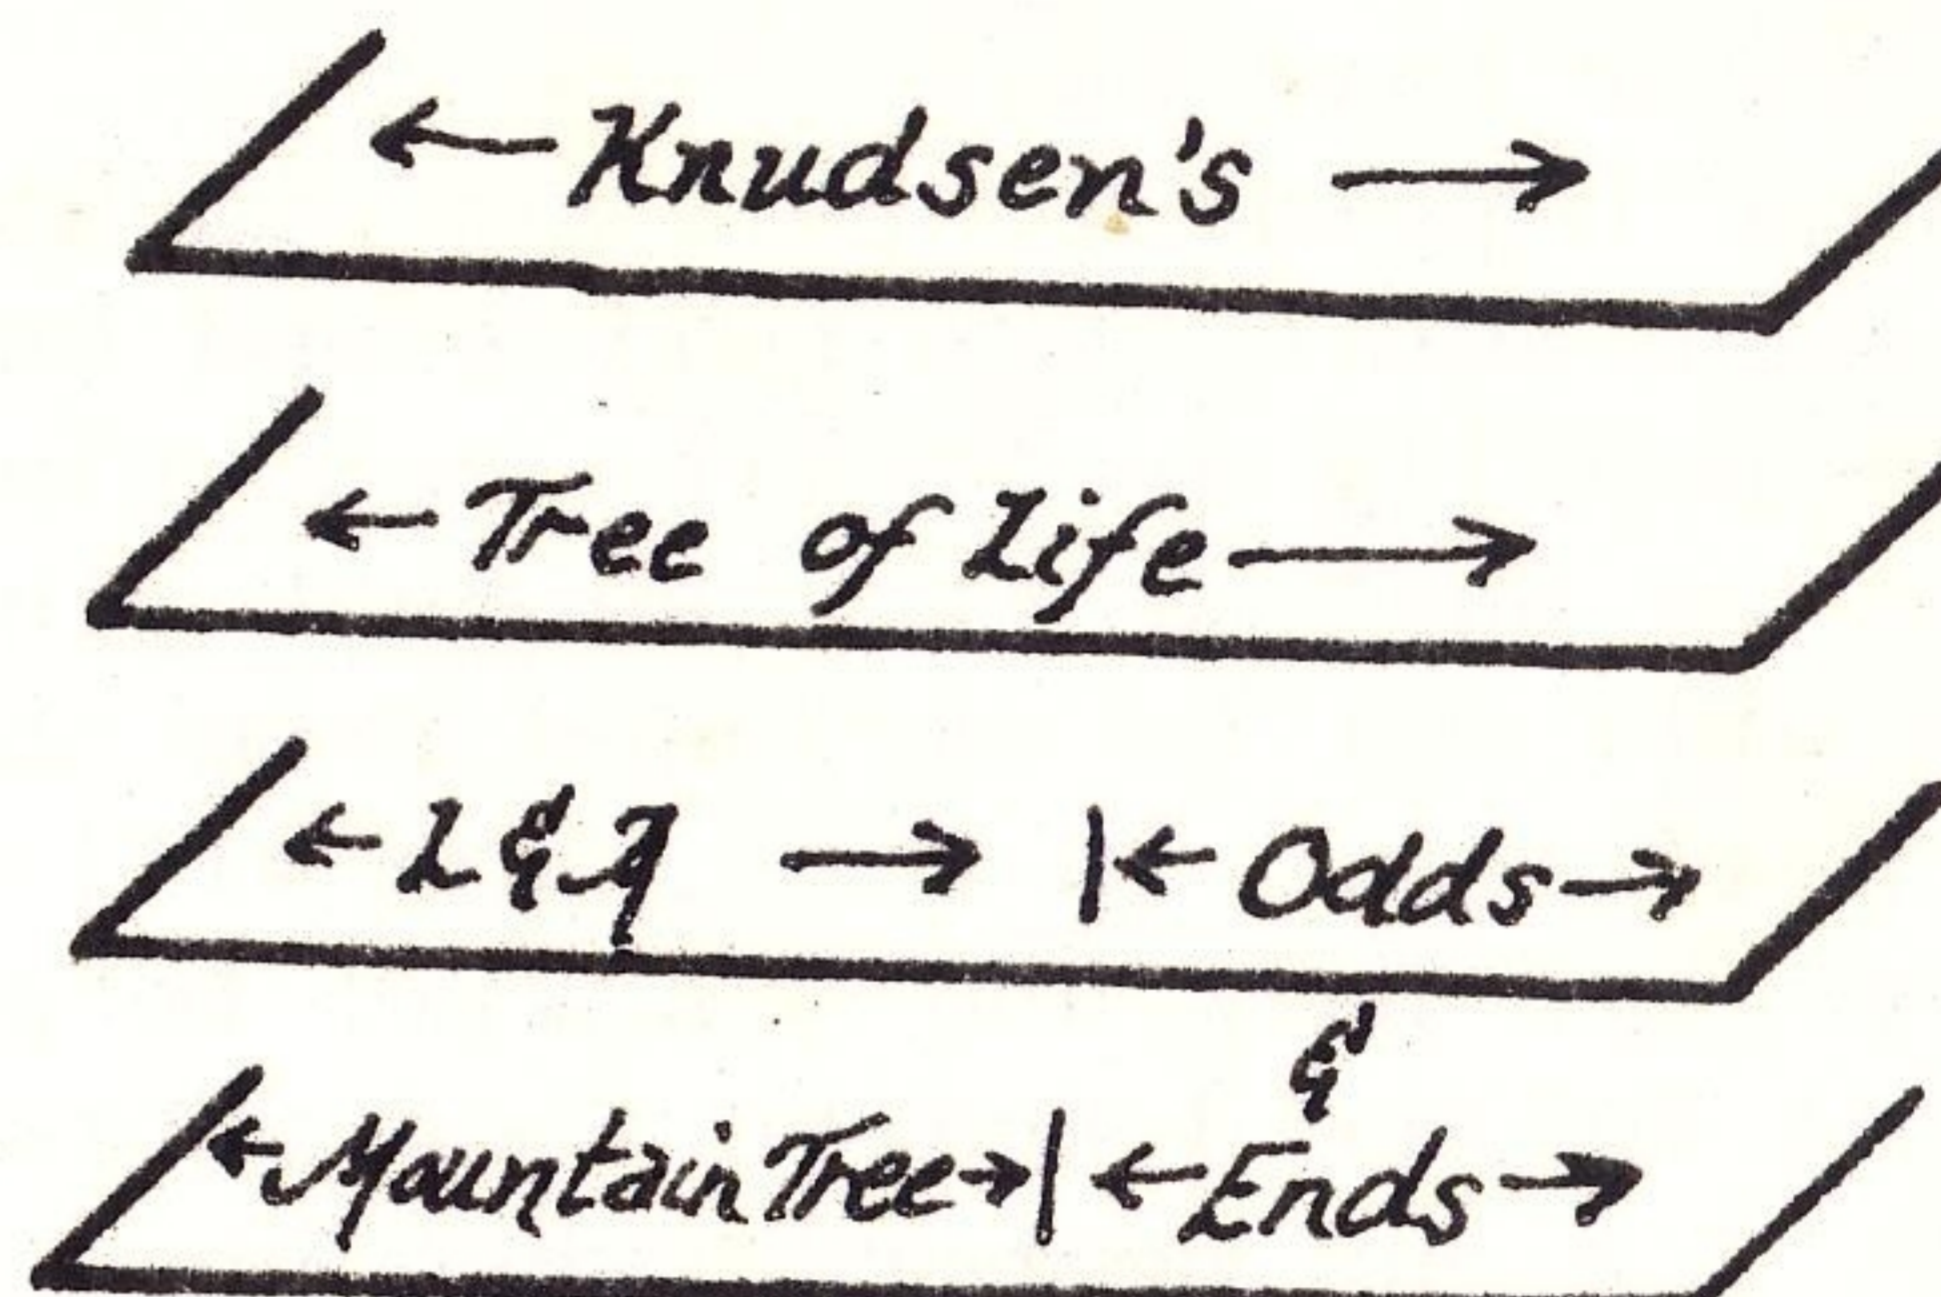 ← Knudsen's →
← Tree of Life →
← L & A → | ← Odds →
&
← Mountain Tree → | ← Ends →